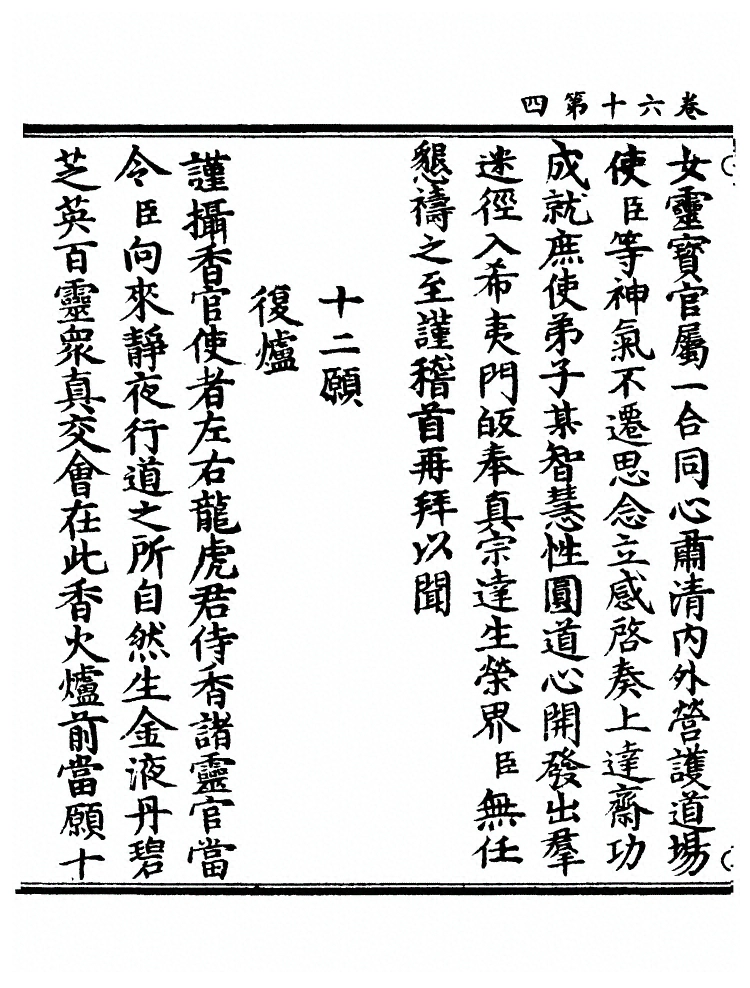 卷六十第四
女靈寶官屬一合同心肅清内外營護道場
使臣等神氣不遷思念立感啓奏上達齋功
成就庶使弟子某智慧性圓道心開發出羣
迷徑入希夷門皈奉真宗達生榮界臣無任
懇禱之至謹稽首再拜以聞
十二願
復爐
謹攝香官使者左右龍虎君侍香諸靈官當
令臣向來靜夜行道之所自然生金液丹碧
芝英百靈衆真交會在此香火爐前當願十